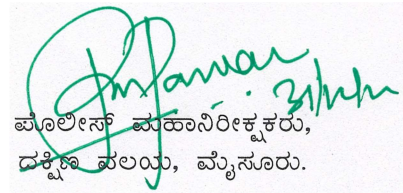 ಪೊಲೀಸ್ ಮಹಾನಿರೀಕ್ಷಕರು,
ದಕ್ಷಿಣ ವಲಯ, ಮೈಸೂರು.